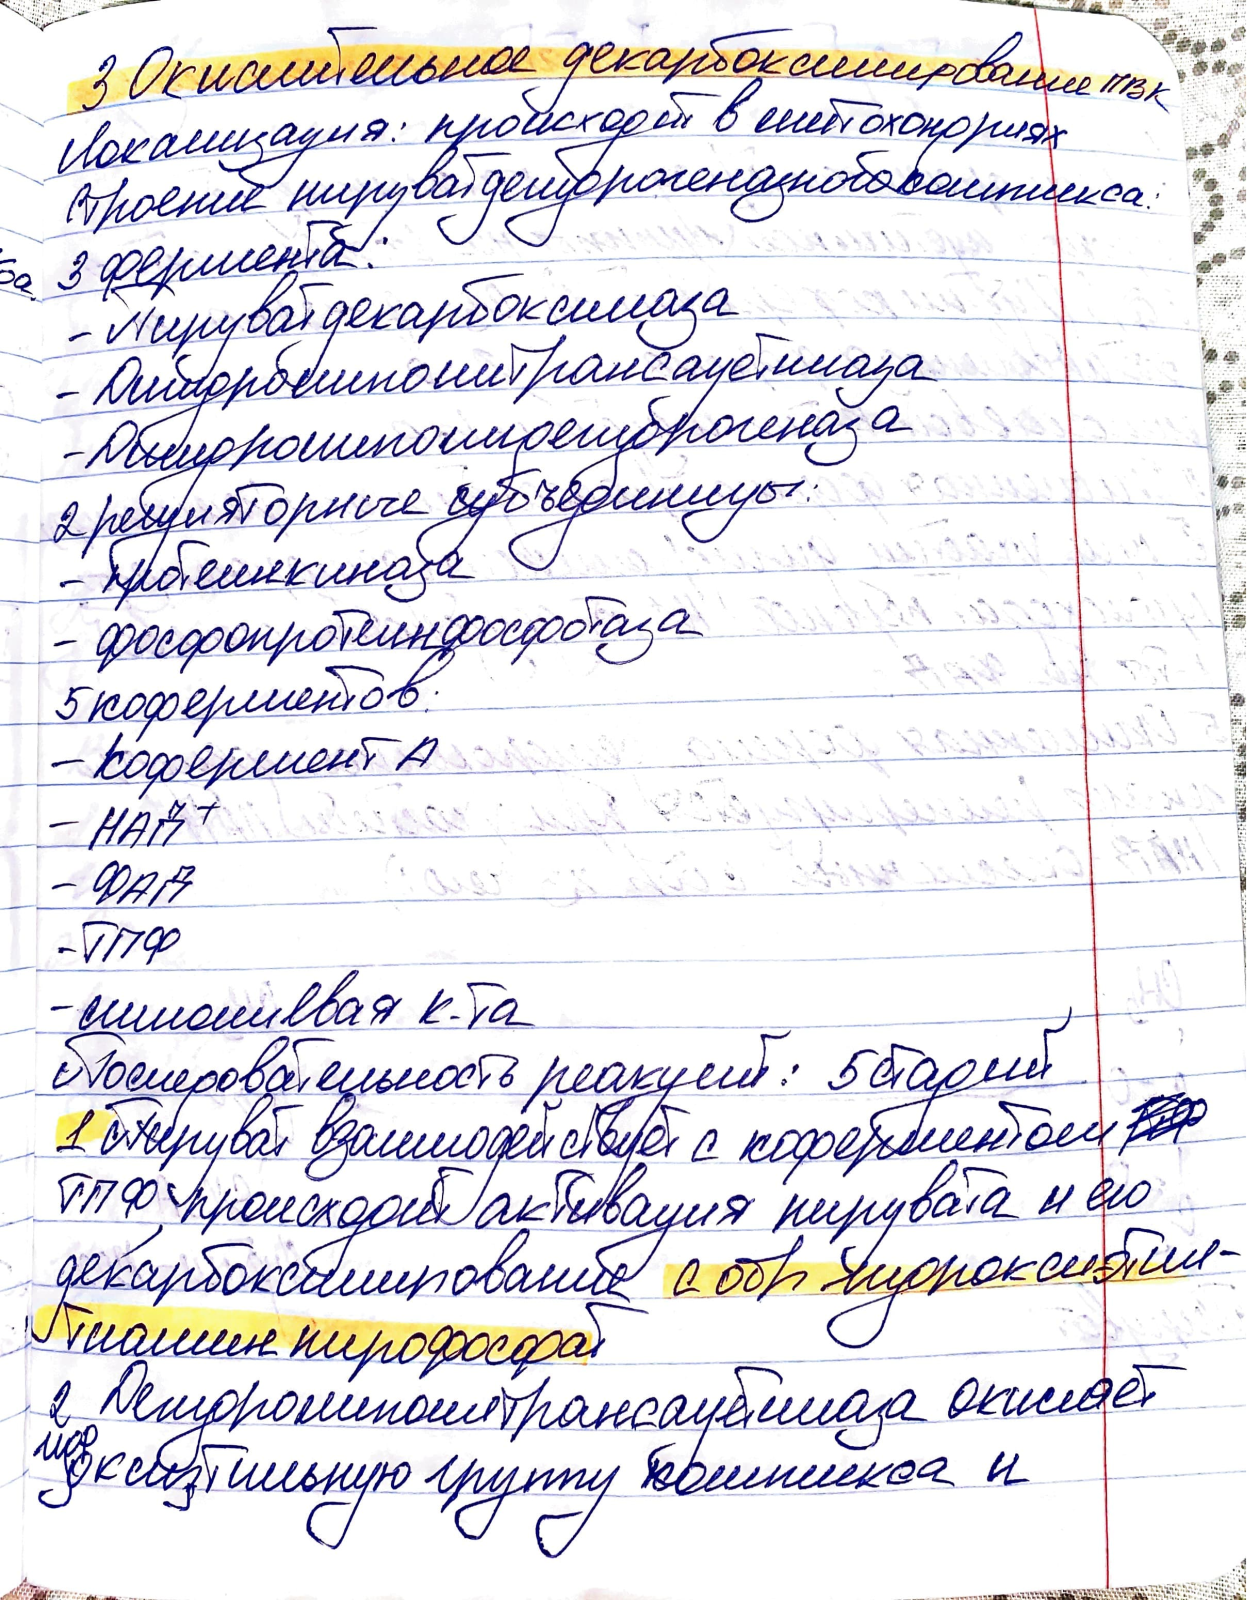 3 Окислительное декарбоксилирование ПВК
Локализация: происходит в митохондриях
Строение пируватдегидрогеназного комплекса:
3 фермента:
- Пируватдекарбоксилаза
- Дигидролипоилтрансацетилаза
- Дигидролипоилдегидрогеназа
2 регуляторные субъединицы:
- протеинкиназа
- фосфопротеинфосфотаза
5 коферментов:
- Кофермент А
- НАД+
- ФАД
- ТПФ
- липоиевая к-та
Последовательность реакций: 5 стадий
1 Пируват взаимодействует с коферментом
ТПФ, происходит активация пирувата и его
декарбоксилирование с обр гидроксиэтил-
тиамин пирофосфат
2 Дегидролипоилтрансацетилаза окисляет
гидроксиэтильную группу комплекса и